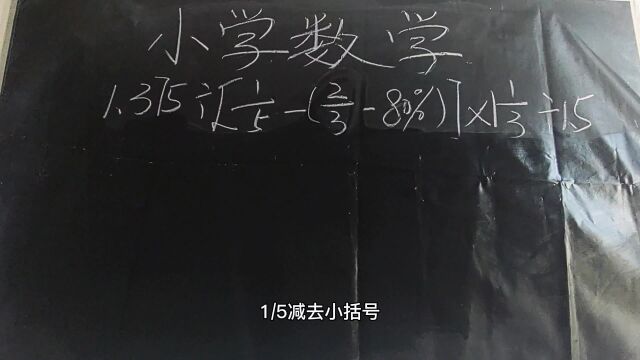 小学数学
1.375÷[1/5-(2/3-80%)]×1 1/3÷15
1/5减去小括号